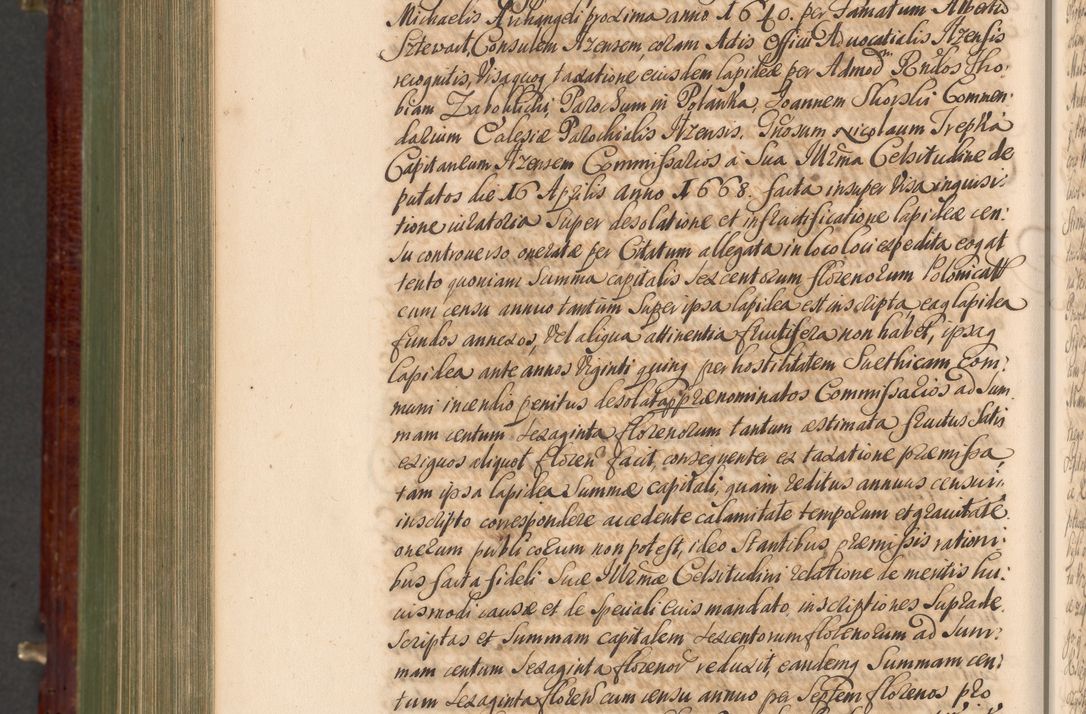 Michaelis Archangeli proxima anno 1640. per Famatum Albertū
Sztewart, Consulem Ilzensem coram Actis Officii Advocatialis Ilzensis
recognitis, Visaquoq taxatione eiusdem lapideæ per Admod Rndos Tho:
biam Parochum in Potawka, Joannem Skorski Commen:
darium Ecclesiæ Parochialis Ilzensis. Gnosum Nicolaum Trepka
Capitaneum Ilzensem Commissarios a Sua Illrma Celsitudine de
putatos die 16 Aprilis anno 1668. facta insuper Visa inquisi:
tione iuratoria super desolatione et infructificatione lapideæ cen:
su controverso oneratæ per Citatum allegata in loco loci expedita eog at
tento quoniam summa capitalis sexcentorum florenorum Polonicall
cum censu annuo tantum super ipsa lapidea est inscripta, eaq lapidea
fundos annexos, Vel aliqua attinentia fructifera non habet, ipsaq
lapidea ante annos Viginti quinq per hostilitatem Suethicam, com:
muni incendio penitus desolata, p prænominatos Commissarios ad Sum
mam centum sexaginta florenorum tantum æstimata fructus satis
exiguos aliquot floren facit, consequenter ex taxatione præmissa,
tam ipsa lapidea summæ capitali, quam reditus annuus censui
inscripto correspondere accedente calamitate temporum et gravitate
onerum publicorum non potest, ideo stantibus præmissis rationi:
bus facta fideli Suæ Illrmæ Celsitudini relatione de meritis hu:
iusmodi causæ et de speciali eius mandato, inscriptiones supra de
scriptas et summam capitalem sexcentorum florenorum ad sum:
mam centum sexaginta florenor reduxit, eandemq Summam cen:
tum sexaginta floren cum censu annuo per Septem florenos pro